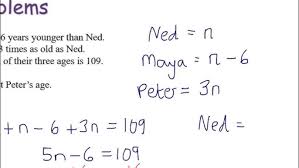 blems
6 years younger than Ned.
times as old as Ned.
of their three ages is 109.
t Peter's age.
Ned = n
Maya = n - 6
Peter = 3n
+ n - 6 + 3n = 109
Ned =
5n - 6 = 109